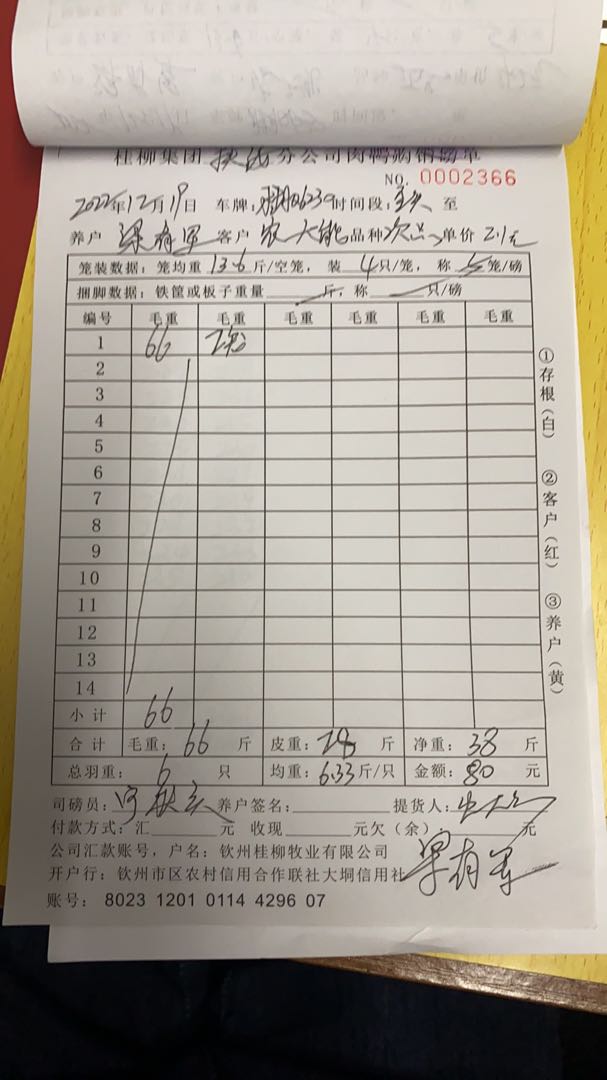 桂柳集团 分公司肉鸭购销磅单
NO. 0002366
2022年12月19日 车牌: 时间段: 至
养户 梁有军 客户 农大 品种 次品 单价 2.1元
笼装数据: 笼均重 13.6 斤/空笼, 装 4 只/笼, 称 笼/磅
捆脚数据: 铁筐或板子重量 斤, 称 只/磅
编号 毛重 毛重 毛重 毛重 毛重 毛重
1 66 2笼
2
3
4
5
6
7
8
9
10
11
12
13
14
小计 66
合计 毛重: 66 斤 皮重: 28 斤 净重: 38 斤
总羽重: 6 只 均重: 6.33 斤/只 金额: 80 元
司磅员: 养户签名: 提货人:
付款方式: 汇 元 收现 元欠(余) 元
公司汇款账号, 户名: 钦州桂柳牧业有限公司
开户行: 钦州市区农村信用合作联社大垌信用社
梁有军
账号: 8023 1201 0114 4296 07
①存根(白)
②客户(红)
③养户(黄)